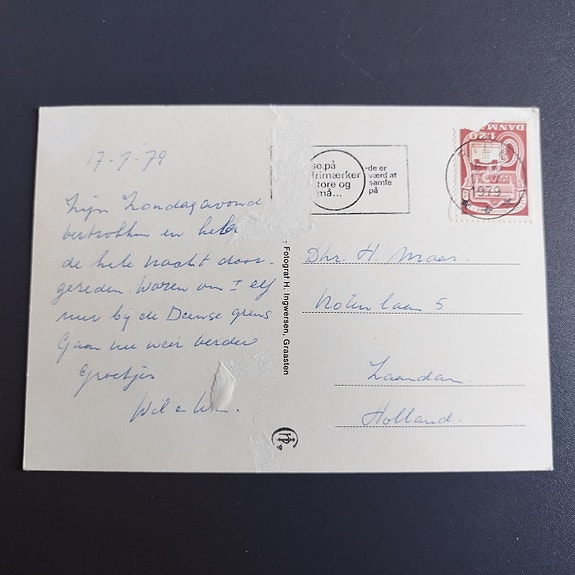 17-7-'79
Zijn Zondagavond
vertrokken en hebb
de hele nacht door-
gereden. Waren om ± elf
uur bij de Deense grens
Gaan nu weer verder
Groetjes
Wil en
se på
frimærker
tore og
må...
-de er
værd at
samle
på
DANMARK
120
1979
Dhr. H. Maas.
Notenlaan 5
Zaandam.
Holland.
Fotograf H. Ingwersen, Graasten